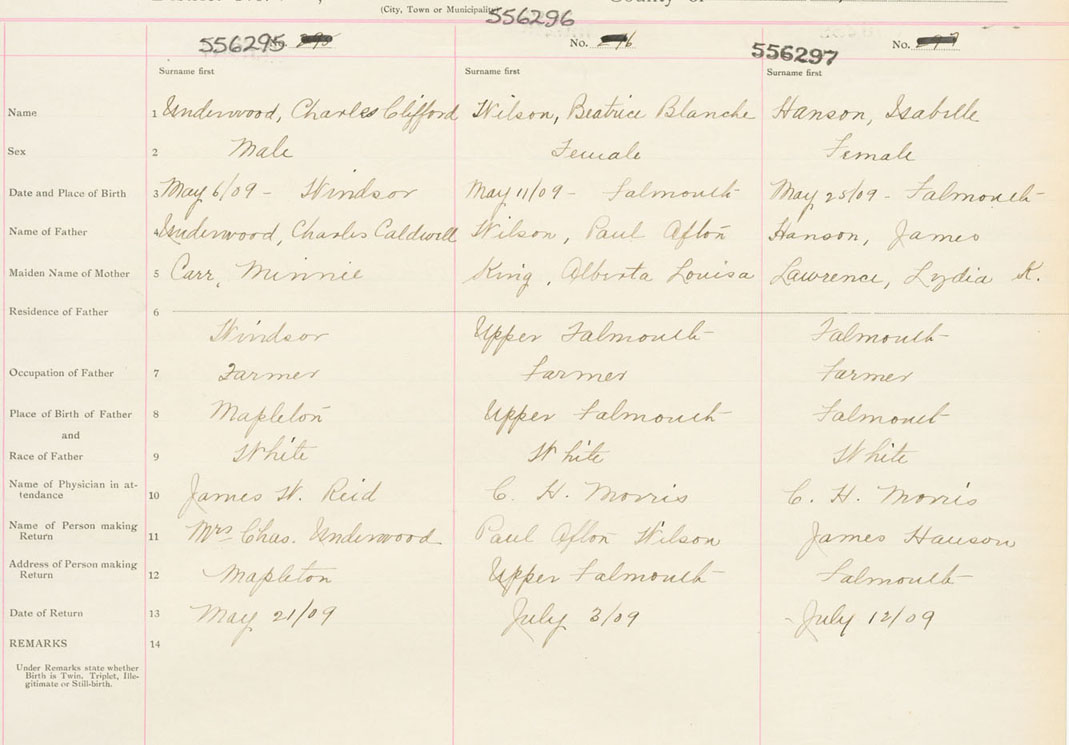 (City, Town or Municipality
556295 No. 295 556296 No. 296 556297 No. 297
Surname first Surname first Surname first
Name 1 Underwood, Charles Clifford Wilson, Beatrice Blanche Hanson, Isabelle
Sex 2 Male Female Female
Date and Place of Birth 3 May 6/09 - Windsor May 11/09 - Falmouth May 25/09 - Falmouth
Name of Father 4 Underwood, Charles Caldwell Wilson, Paul Afton Hanson, James
Maiden Name of Mother 5 Carr, Minnie King, Alberta Louisa Lawrence, Lydia K.
Residence of Father 6
Windsor Upper Falmouth Falmouth
Occupation of Father 7 Farmer Farmer Farmer
Place of Birth of Father 8 Mapleton Upper Falmouth Falmouth
and
Race of Father 9 White White White
Name of Physician in at-
tendance 10 James W. Reid C. H. Morris C. H. Morris
Name of Person making
Return 11 Mrs Chas. Underwood Paul Afton Wilson James Hanson
Address of Person making
Return 12 Mapleton Upper Falmouth Falmouth
Date of Return 13 May 21/09 July 3/09 July 12/09
REMARKS 14
Under Remarks state whether
Birth is Twin, Triplet, Ille-
gitimate or Still-birth.